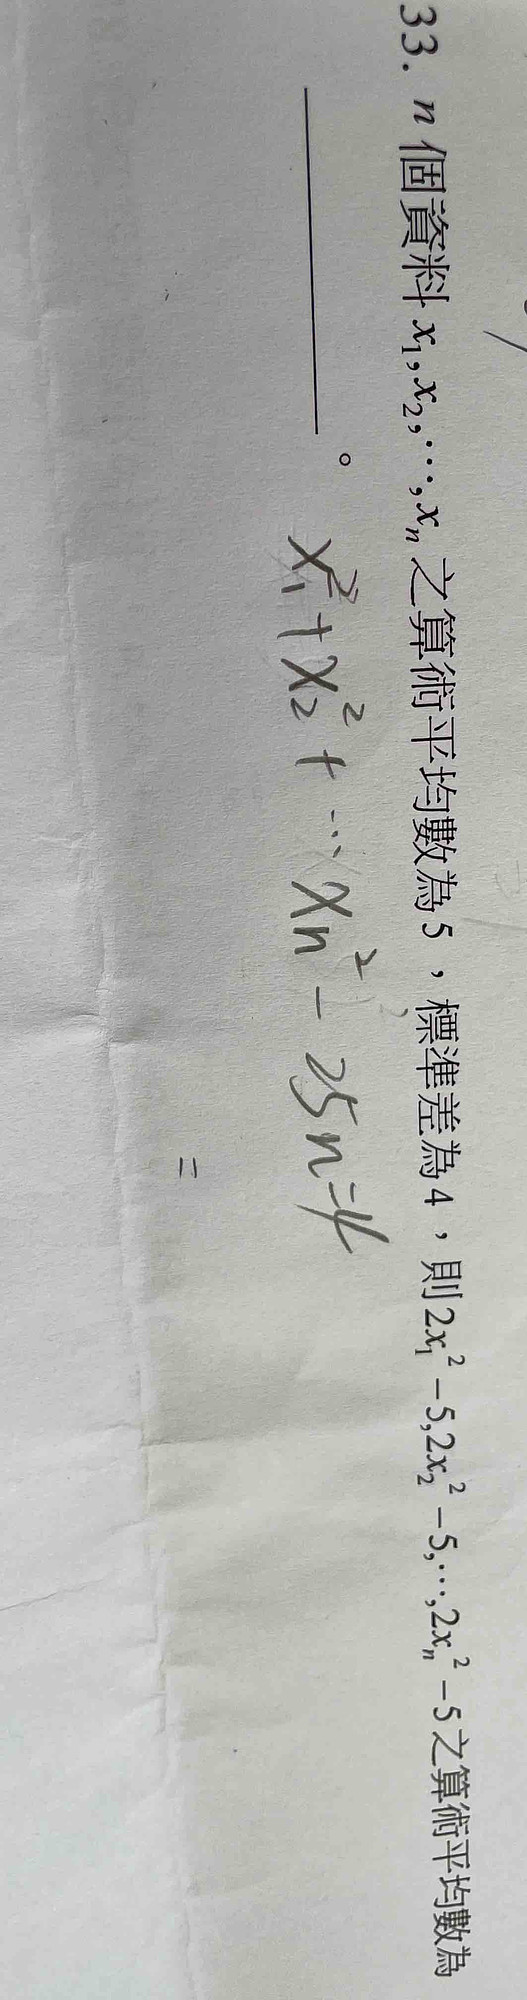 33. n 個資料 x₁,x₂,⋯,xₙ 之算術平均數為5，標準差為4，則2x₁²－5,2x₂²－5,⋯,2xₙ²－5之算術平均數為
＿＿＿＿＿＿。
x₁²+x₂²+⋯xₙ²－25n=4
=